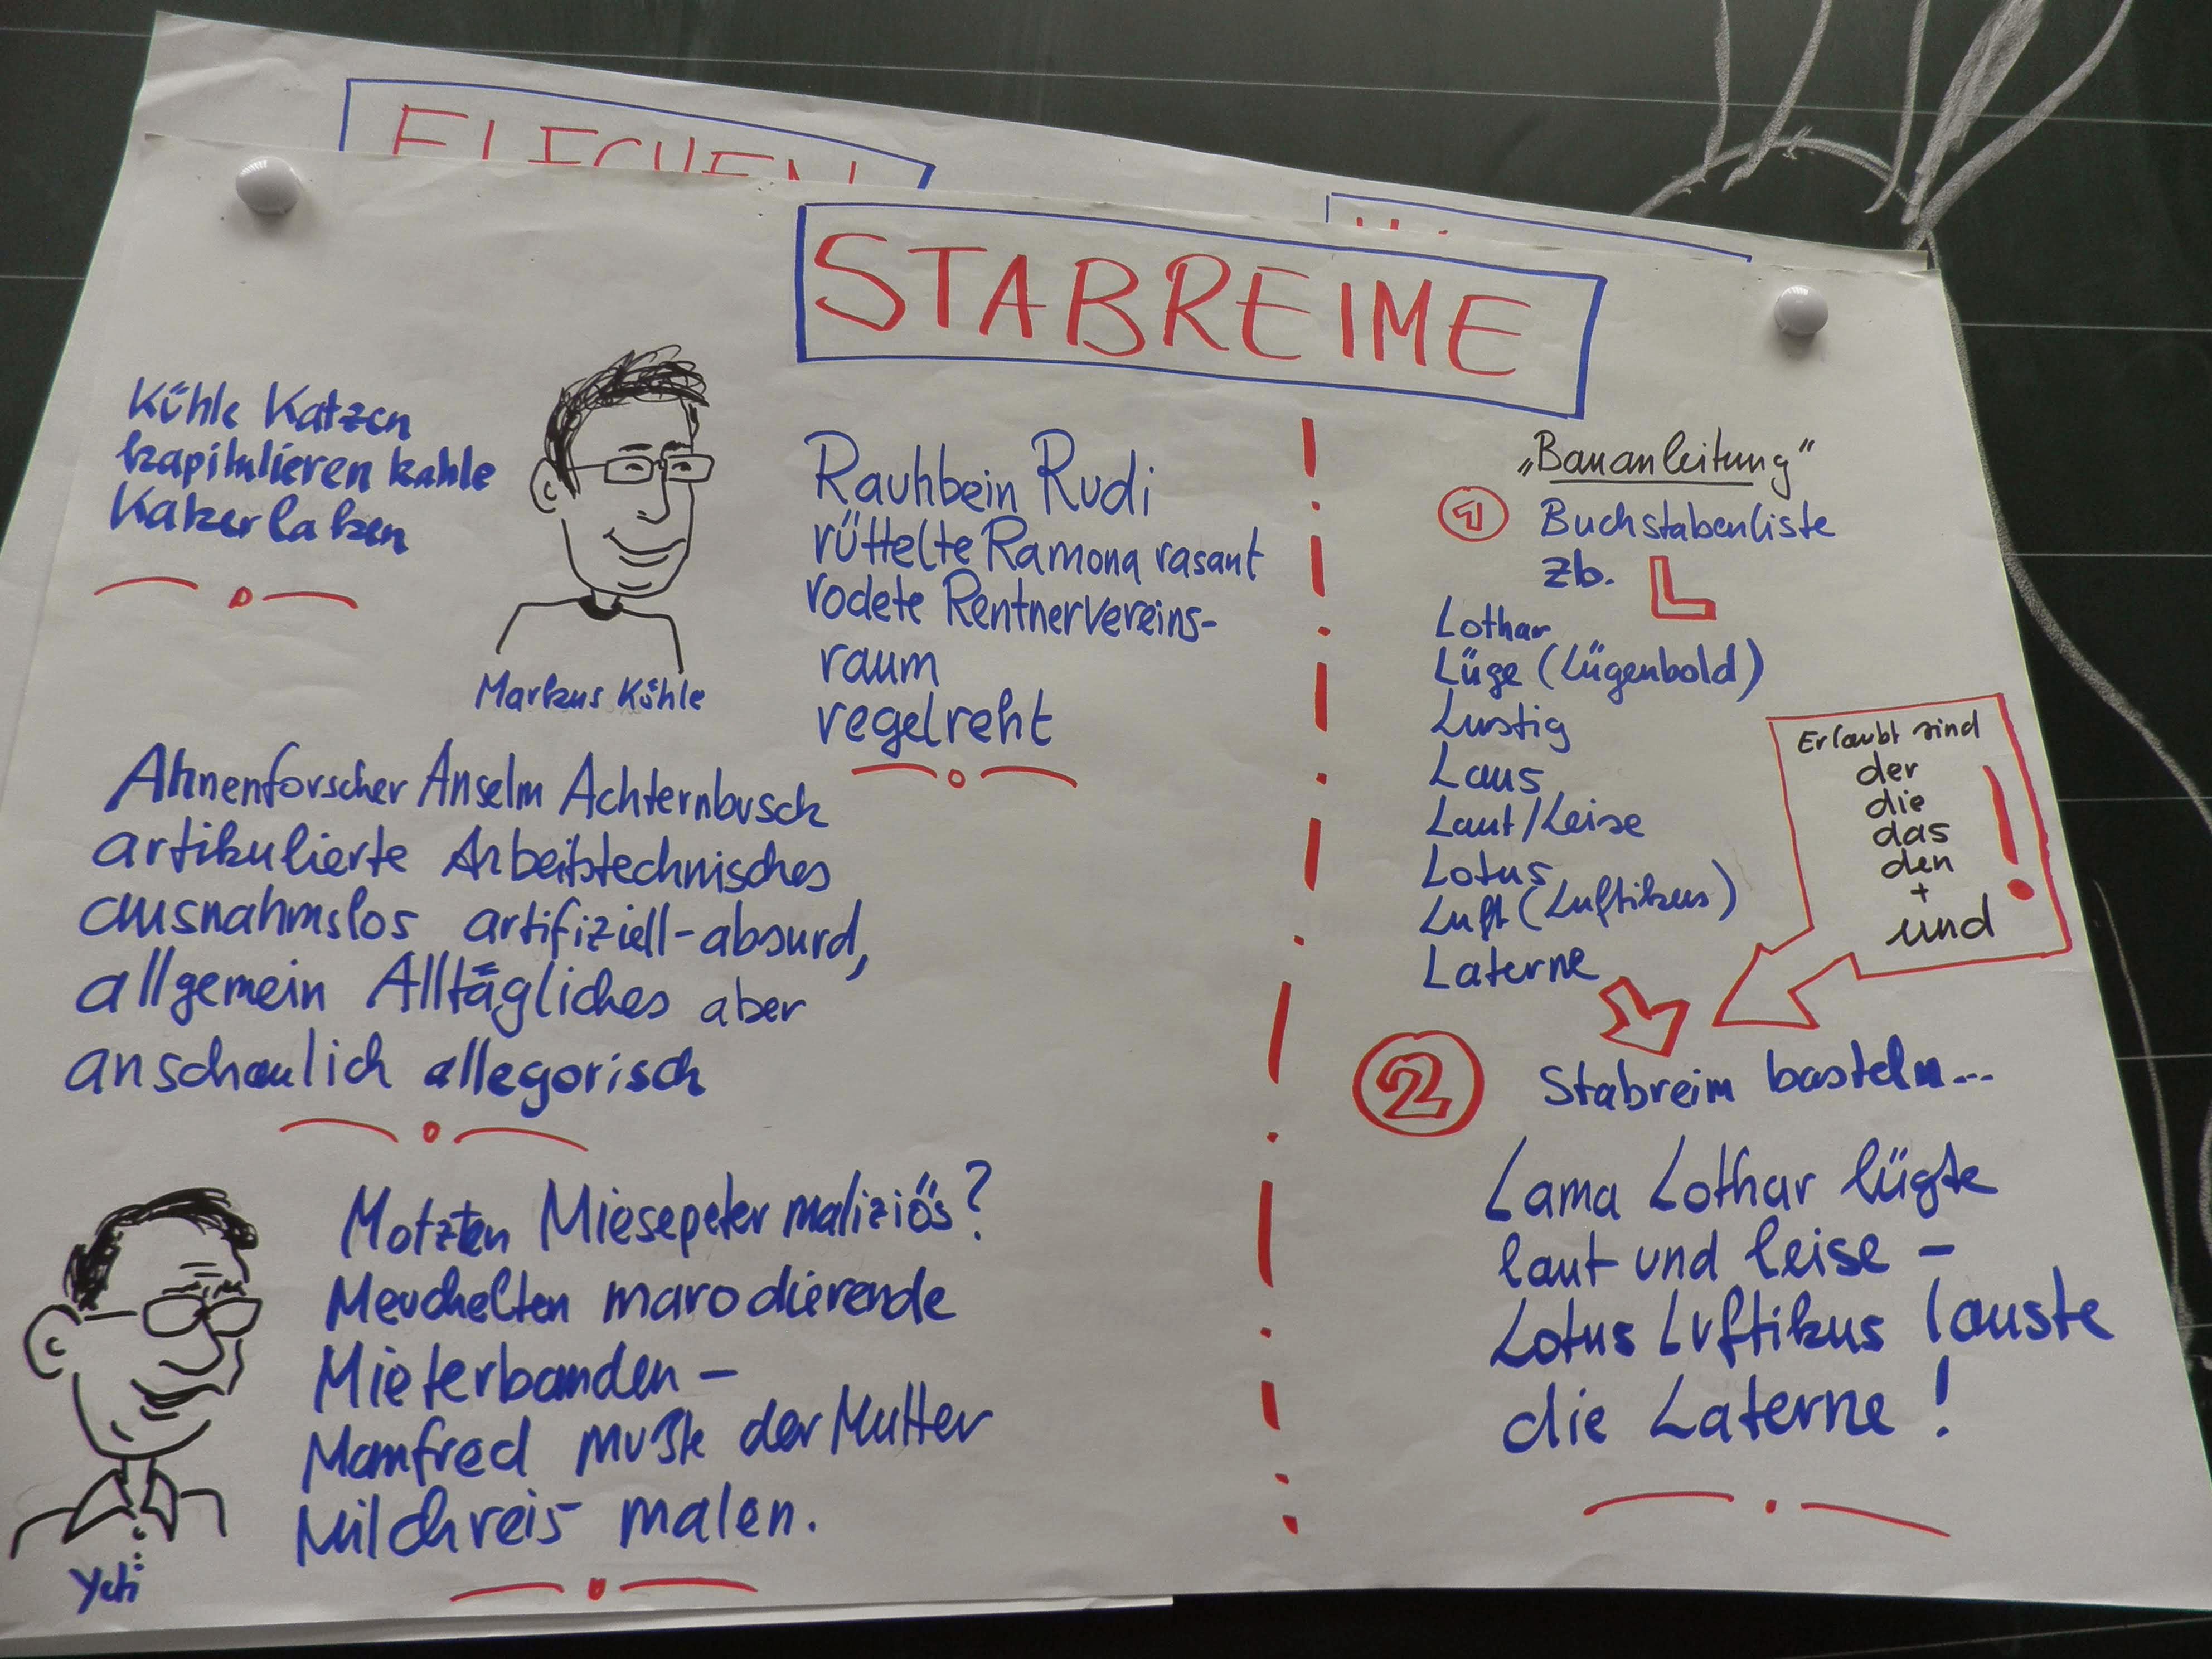 STABREIME
Kühle Katzen
kapitulieren kahle
Kakerlaken
Markus Köhle
Rauhbein Rudi
rüttelte Ramona rasant
rodete Rentnervereins-
raum
regelreht
Ahnenforscher Anselm Achternbusch
artikulierte Arbeitstechnisches
ausnahmslos artifiziell-absurd,
allgemein Alltägliches aber
anschaulich allegorisch
Motzten Miesepeter maliziös?
Meuchelten marodierende
Mieterbanden –
Manfred mußte der Mutter
Milchreis malen.
Yeti
„Bauanleitung"
1 Buchstabenliste
zb. L
Lothar
Lüge (Lügenbold)
Lustig
Laus
Laut/Leise
Lotus
Luft (Luftikus)
Laterne
Erlaubt sind
der
die
das
den
+
und
!
2 Stabreim basteln...
Lama Lothar lügte
laut und leise –
Lotus Luftikus lauste
die Laterne!